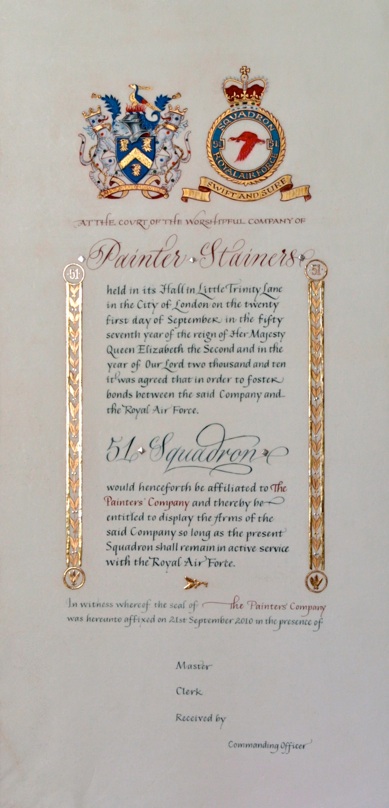 SQUADRON
51 51
ROYAL AIR FORCE
SWIFT AND SURE
AT THE COURT OF THE WORSHIPFUL COMPANY OF
Painter Stainers
51 51
held in its Hall in Little Trinity Lane
in the City of London on the twenty
first day of September in the fifty
seventh year of the reign of Her Majesty
Queen Elizabeth the Second and in the
year of Our Lord two thousand and ten
it was agreed that in order to foster
bonds between the said Company and
the Royal Air Force.
51 Squadron
would henceforth be affiliated to The
Painters' Company and thereby be
entitled to display the Arms of the
said Company so long as the present
Squadron shall remain in active service
with the Royal Air Force.
In witness whereof the seal of the Painters' Company
was hereunto affixed on 21st September 2010 in the presence of
Master
Clerk
Received by
Commanding Officer